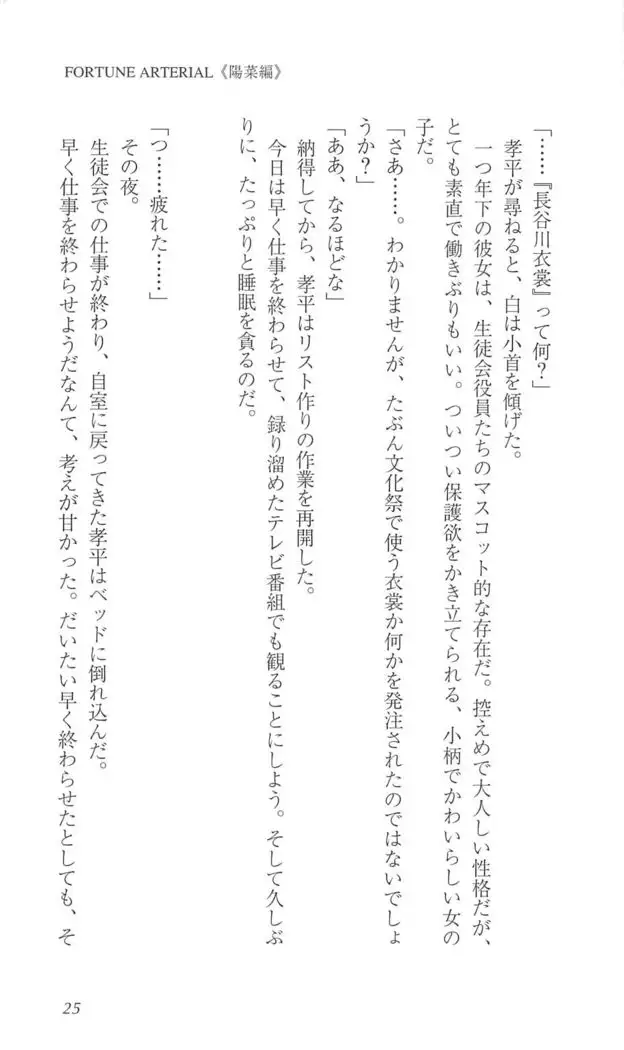 FORTUNE ARTERIAL《陽菜編》
「……『長谷川衣裳』って何？」
孝平が尋ねると、白は小首を傾げた。
一つ年下の彼女は、生徒会役員たちのマスコット的な存在だ。控えめで大人しい性格だが、
とても素直で働きぶりもいい。ついつい保護欲をかき立てられる、小柄でかわいらしい女の
子だ。
「さあ……。わかりませんが、たぶん文化祭で使う衣裳か何かを発注されたのではないでしょ
うか？」
「ああ、なるほどな」
納得してから、孝平はリスト作りの作業を再開した。
今日は早く仕事を終わらせて、録り溜めたテレビ番組でも観ることにしよう。そして久しぶ
りに、たっぷりと睡眠を貪るのだ。
「つ……疲れた……」
その夜。
生徒会での仕事が終わり、自室に戻ってきた孝平はベッドに倒れ込んだ。
早く仕事を終わらせようだなんて、考えが甘かった。だいたい早く終わらせたとしても、そ
25